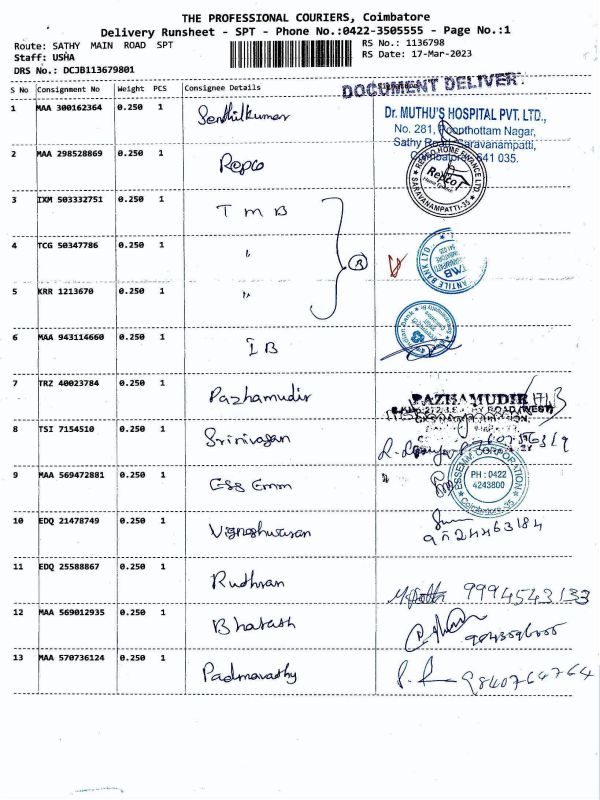 THE PROFESSIONAL COURIERS, Coimbatore
Delivery Runsheet - SPT - Phone No.:0422-3505555 - Page No.:1
Route: SATHY MAIN ROAD SPT
RS No.: 1136798
Staff: USHA
RS Date: 17-Mar-2023
DRS No.: DCJB113679801
S No Consignment No Weight PCS Consignee Details
DOCUMENT DELIVER
1 MAA 300162364 0.250 1 Senthilkumar
Dr. MUTHU'S HOSPITAL PVT. LTD.,
No. 281, Poopthottam Nagar,
Sathy Road, Saravanampatti,
Coimbatore 641 035.
2 MAA 298528869 0.250 1 Repco
REPCO HOME FINANCE LTD
SARAVANAMPATTI-35
3 IXM 503332751 0.250 1 T M B
4 TCG 50347786 0.250 1 "
R
TMB
5 KRR 1213670 0.250 1 "
6 MAA 943114660 0.250 1 I B
Indian Bank
7 TRZ 40023784 0.250 1 Pazhamudir
PAZHAMUDIR
8 TSI 7154510 0.250 1 Srinivasan
9 MAA 569472881 0.250 1 Ess Emm
ESSEMM CORPORATION
PH : 0422
4243800
Coimbatore-35
10 EDQ 21478749 0.250 1 Vigneshwaran
11 EDQ 25588867 0.250 1 Rudhran
9994543133
12 MAA 569012935 0.250 1 Bharath
13 MAA 570736124 0.250 1 Padmavathy
9840764764